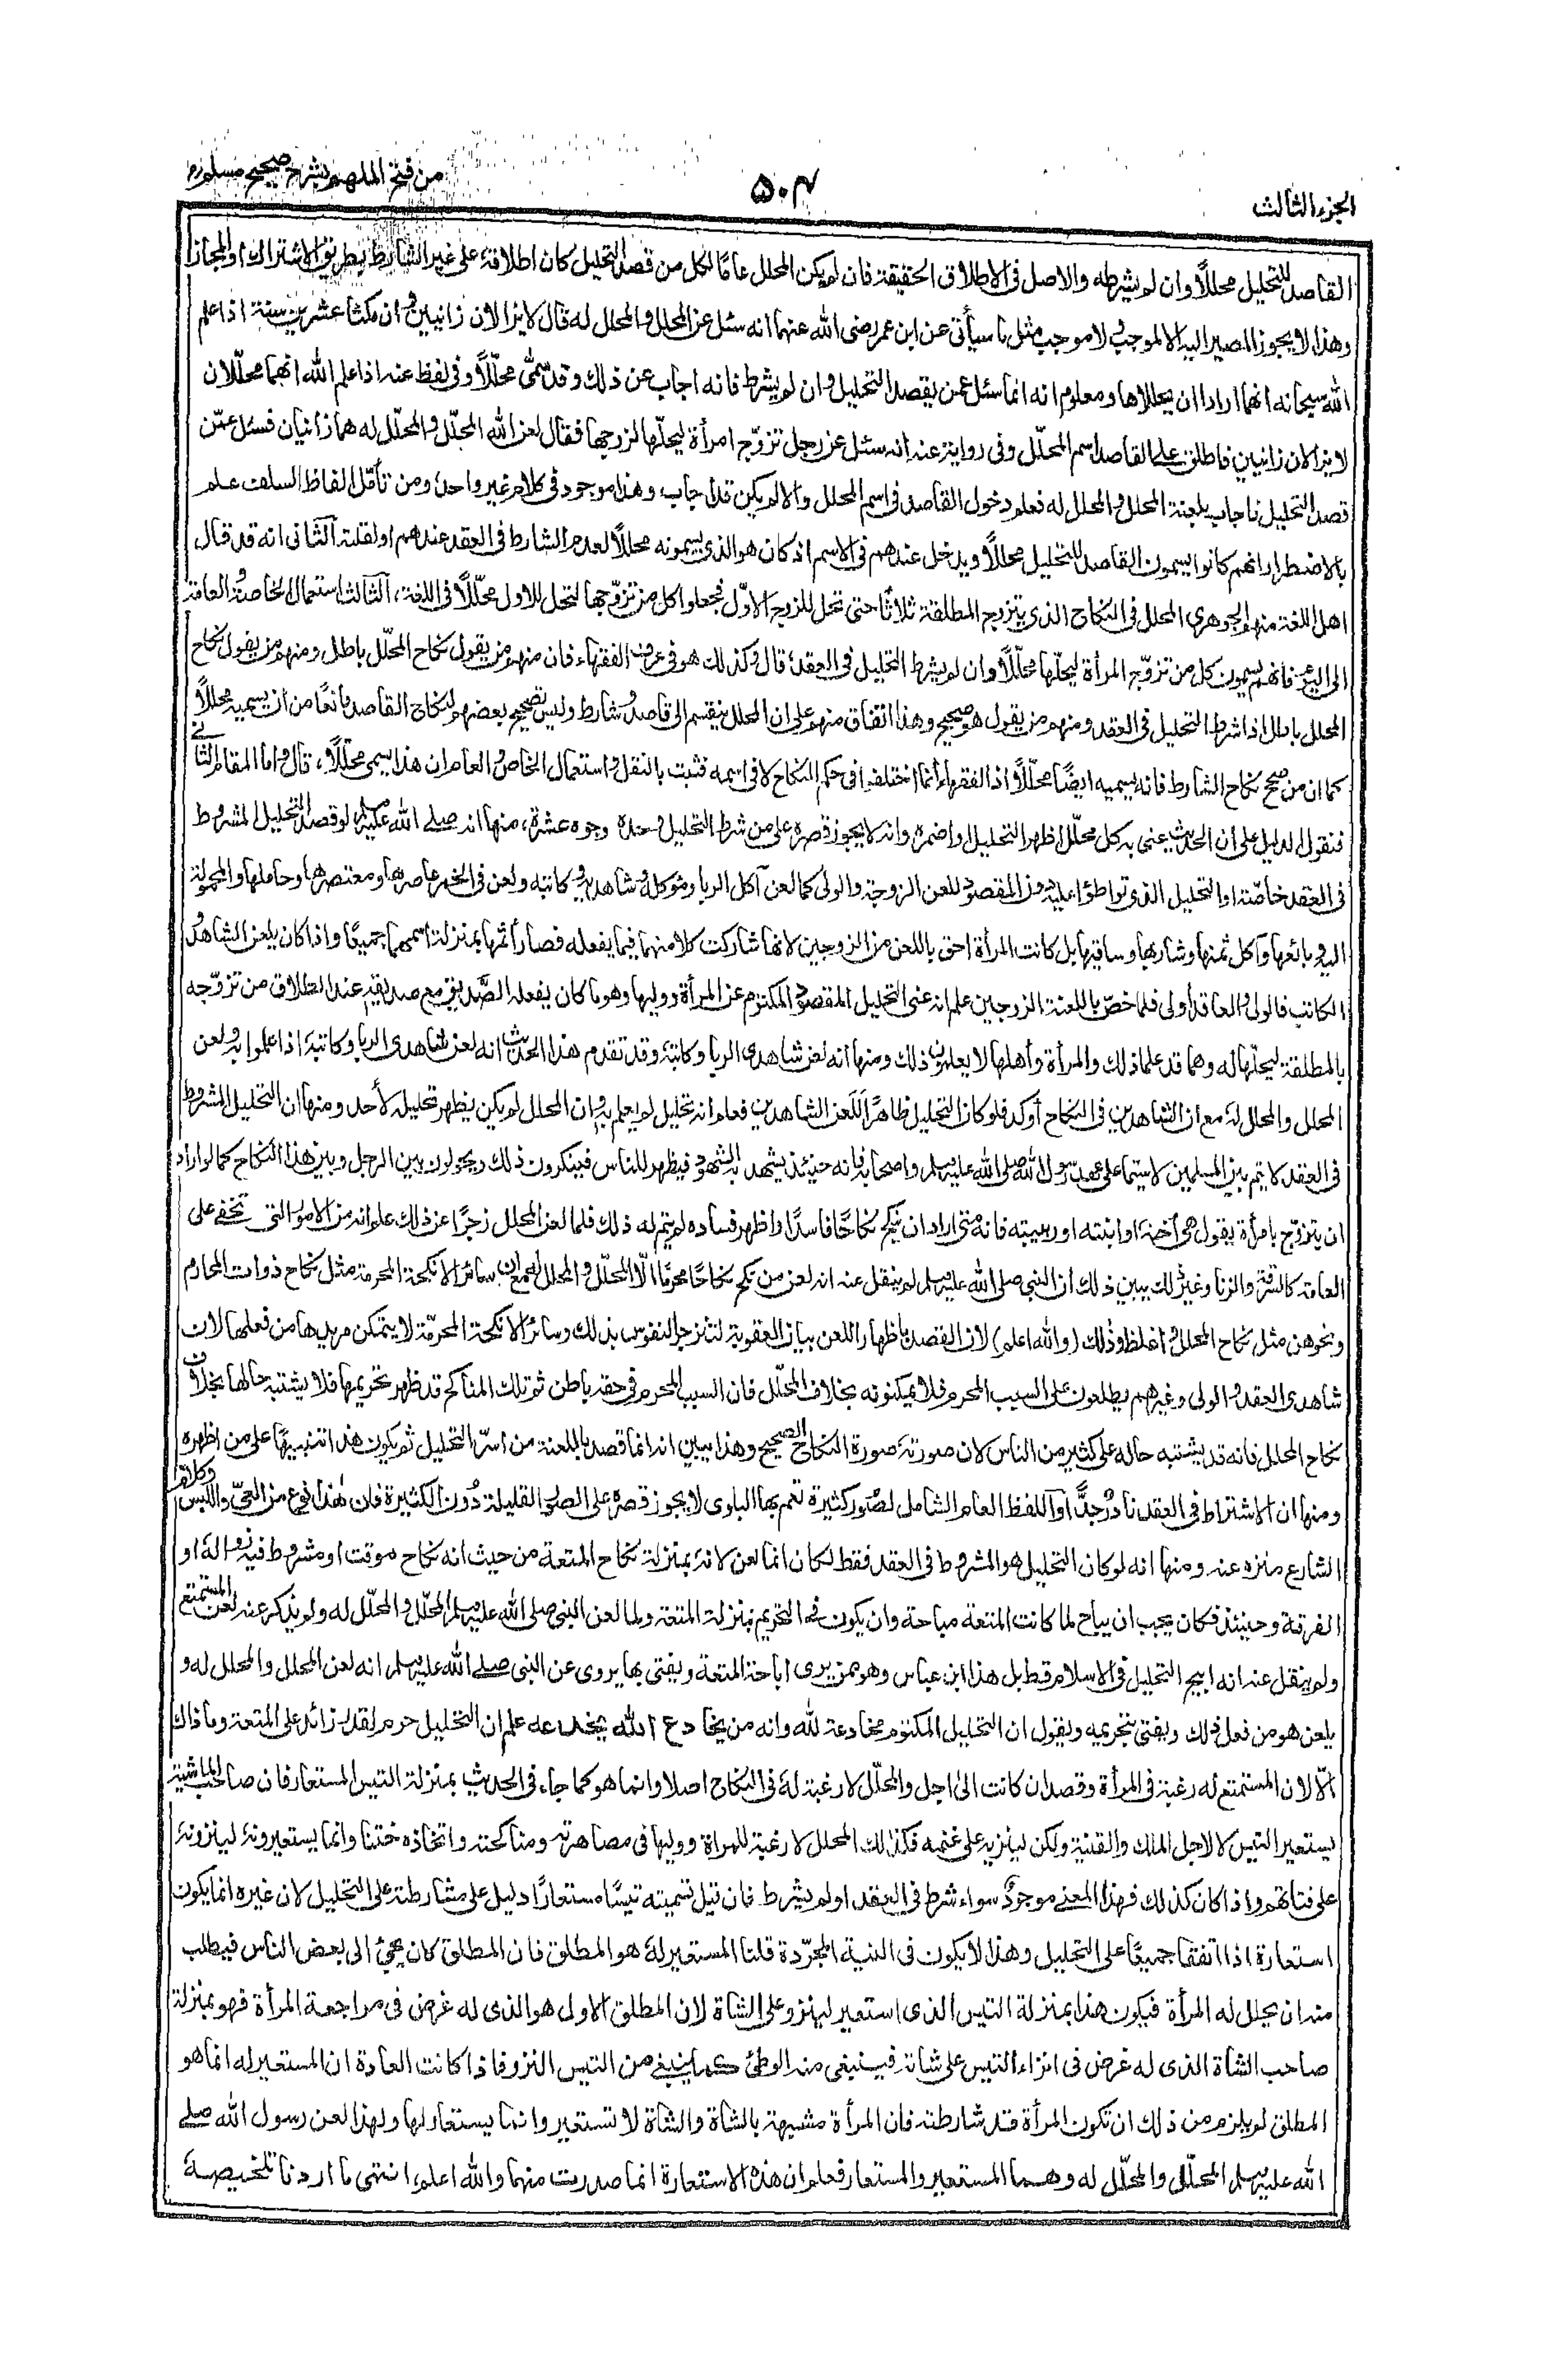 الجزء الثالث
۵۰۴
من فتح الملهم بشرح صحيح مسلم
القاصد للتحليل محللاً وان لم يشرطه والاصل فى الاطلاق الحقيقة فان لم يكن المحلل عامًا لكل من قصد التحليل كان اطلاقه على غير الشارط بطريق الاشتراك او المجاز
وهذا لا يجوز المصير اليه الا لموجب ولا موجب مثل ما سيأتى عن ابن عمر رضى الله عنهما انه سئل عن المحلل والمحلل له قال لا يزالان زانيين وان مكثا عشرين سنة اذا علم
الله سبحانه انهما ارادا ان يحللاها ومعلوم انه انما سئل عمن يقصد التحليل وان لم يشرط فانه اجاب عن ذلك وقد سمى محلّلاً وفى لفظ عنه اذا علم الله انهما محللان
لا يزالان زانيين فاطلق على القاصد اسم المحلّل وفى رواية عنه انه سئل عن رجل تزوّج امرأة ليحلّها لزوجها فقال لعن الله المحلّل والمحلّل له هما زانيان فسئل عمّن
قصد التحليل فاجاب بلعنة المحلل والمحلل له فعلم دخول القاصد فى اسم المحلل والا لم يكن قد اجاب، وهذا موجود فى كلام غير واحد، ومن تأمّل الفاظ السلف علم
بالاضطرار انهم كانوا يسمون القاصد للتحليل محللاً ويدخل عندهم فى الاسم اذ كان هو الذى يسمونه محللاً لعدم الشارط فى العقد عندهم او لقلته الثانى انه قد قال
اهل اللغة منهم الجوهرى المحلل فى النكاح الذى يتزوج المطلقة ثلاثًا حتى تحل للزوج الاوّل فجعلوا كل من تزوّجها لتحل للاول محلّلاً فى اللغة، الثالث استعمال الخاصة والعامة
الى اليوم فانهم يسمون كل من تزوّج المرأة ليحلّها محلّلاً وان لم يشرط التحليل فى العقد، قال وكذلك هو فى عرف الفقهاء فان منهم من يقول نكاح المحلّل باطل ومنهم من يقول نكاح
المحلل باطل اذا شرط التحليل فى العقد ومنهم من يقول هو صحيح وهذا اتفاق منهم على ان المحلل ينقسم الى قاصد وشارط وليس تصحيح بعضهم لنكاح القاصد مانعًا من ان يسميه محللاً
كما ان من صحح نكاح الشارط فانه يسميه ايضًا محلّلاً اذ الفقهاء انما اختلفوا فى حكم النكاح لا فى اسمه فثبت بالنقل واستعمال الخاص والعام ان هذا يسمى محلّلاً، قال واما المقام الثانى
فنقول الدليل على ان الحديث عنى به كل محلّل اظهر التحليل او اضمره وانه لا يجوز قصره على من شرط التحليل وحده وجوه عشرة، منها انه صلى الله عليه وسلم لو قصد التحليل المشروط
فى العقد خاصّة او التحليل الذى تواطؤا عليه دون المقصود للعن الزوجة والولى كما لعن آكل الربا وموكله وشاهديه وكاتبه ولعن فى الخمر عاصرها ومعتصرها وحاملها والمحمولة
اليه وبائعها وآكل ثمنها وشاربها وساقيها بل كانت المرأة احق باللعن من الزوجين لانها شاركت كلا منهما فيما يفعله فصار اثمها بمنزلة اثمهما جميعًا واذا كان يلعن الشاهد و
الكاتب فالولى والعاقد اولى فلما خصّ باللعنة الزوجين علم انه عنى التحليل المقصود المكتوم عن المرأة ووليها وهو ما كان يفعله الصّديق مع صديقه عند الطلاق من تزوّجه
بالمطلقة ليحلّها له وهما قد علما ذلك والمرأة واهلها لا يعلمون ذلك ومنها انه لعن شاهدى الربا وكاتبه وقد تقدم هذا الحديث انه لعن شاهدى الربا وكاتبه اذا علموا به ولعن
المحلل والمحلل له مع ان الشاهدين فى النكاح أوكد فلو كان التحليل ظاهرًا لَلَعن الشاهدين فعلم انه تحليل لم يعلم به وان المحلل لم يكن يظهر تحليله لأحد ومنها ان التحليل المشروط
فى العقد لا يتم بين المسلمين لا سيما على عهد رسول الله صلى الله عليه وسلم واصحابه فانه حينئذ يشهد به الشهود فيظهر للناس فينكرون ذلك ويحولون بين الرجل وبين هذا النكاح كما لو اراد
ان يتزوّج بامرأة يقول هى أخته او ابنته او ربيبته فانه متى اراد ان ينكح نكاحًا فاسدًا واظهر فساده لم يتم له ذلك فلما لعن المحلل زجرًا عن ذلك علم انه من الامور التى تخفى على
العامة كالسرقة والزنا وغير ذلك يبين ذلك ان النبى صلى الله عليه وسلم لم ينقل عنه انه لعن من نكح نكاحًا محرمًا الا المحلّل والمحلل له مع ان سائر الانكحة المحرمة مثل نكاح ذوات المحارم
ونحوهن مثل نكاح المحلل و اغلظ وذلك (والله اعلم) لان القصد باظهار اللعن بيان العقوبة لتنزجر النفوس بذلك وسائر الانكحة المحرمّة لا يتمكن مريدها من فعلها لان
شاهدى العقد والولى وغيرهم يطلعون على السبب المحرم فلا يمكنونه بخلاف المحلّل فان السبب المحرم فى حقه باطن ثم تلك المناكح قد ظهر تحريمها فلا يشتبه حالها بخلاف
نكاح المحلل فانه قد يشتبه حاله على كثير من الناس لان صورته صورة النكاح الصحيح وهذا يبين انه انما قصد باللعنة من اسرّ التحليل ثم يكون هذا تنبيهًا على من اظهره
ومنها ان الاشتراط فى العقد نادر جدًّا او اللفظ العام الشامل لصُوَر كثيرة تعم بها البلوى لا يجوز قصره على الصور القليلة دُون الكثيرة فان هذا نوع من العىّ واللبس وكلام
الشارع منزه عنه ومنها انه لو كان التحليل هو المشروط فى العقد فقط لكان انما لعن لانه بمنزلة نكاح المتعة من حيث انه نكاح موقت او مشروط فيه زواله او
الفرقة وحينئذ فكان يجب ان يباح لما كانت المتعة مباحة وان يكون فى التحريم بمنزلة المتعة ولما لعن النبى صلى الله عليه وسلم المحلّل والمحلّل له ولم يذكر عنه لعن المستمتع
ولم ينقل عنه انه ابيح التحليل فى الاسلام قط بل هذا ابن عباس وهو ممن يرى اباحة المتعة ويفتى بها يروى عن النبى صلى الله عليه وسلم انه لعن المحلل والمحلل له و
يلعن هو من فعل ذلك ويفتى بتحريمه ويقول ان التحليل المكتوم مخادعة لله وانه من يخادع الله يخدعه علم ان التحليل حرم لقدر زائد على المتعة وما ذاك
الّا لان المستمتع له رغبة فى المرأة وقصد ان كانت الى اجل والمحلّل لا رغبة له فى النكاح اصلا وانما هو كما جاء فى الحديث بمنزلة التيس المستعار فان صاحب الماشية
يستعير التيس لا لاجل الملك والقنية ولكن لينزيه على غنمه فكذلك المحلل لا رغبة للمرأة ووليها فى مصاهرته ومناكحته واتخاذه ختنا وانما يستعيرونه لينزونه
على فتاتهم واذا كان كذلك فهذا المعنى موجود سواء شرط فى العقد او لم يشرط فان قيل تسميته تيسًا مستعارًا دليل على مشارطته على التحليل لان غيره انما يكون
استعارة اذا اتفقا جميعًا على التحليل وهذا لا يكون فى النية المجرّدة قلنا المستعير له هو المطلق فان المطلق كان يجئ الى بعض الناس فيطلب
منه ان يحلل له المرأة فيكون هذا بمنزلة التيس الذى استعير لينزو على الشاة لان المطلق الاول هو الذى له غرض فى مراجعة المرأة فهو بمنزلة
صاحب الشاة الذى له غرض فى انزاء التيس على شاته فيبتغى منه الوطئ كما يبتغى من التيس النزو فاذا كانت العادة ان المستعير له انما هو
المطلق لم يلزم من ذلك ان تكون المرأة قد شارطته فان المرأة مشبهة بالشاة والشاة لا تستعير وانما يستعار لها ولهذا لعن رسول الله صلى
الله عليه وسلم المحلّل والمحلّل له وهما المستعير والمستعار فعلم ان هذه الاستعارة انما صدرت منهما والله اعلم، انتهى ما اردنا تلخيصه